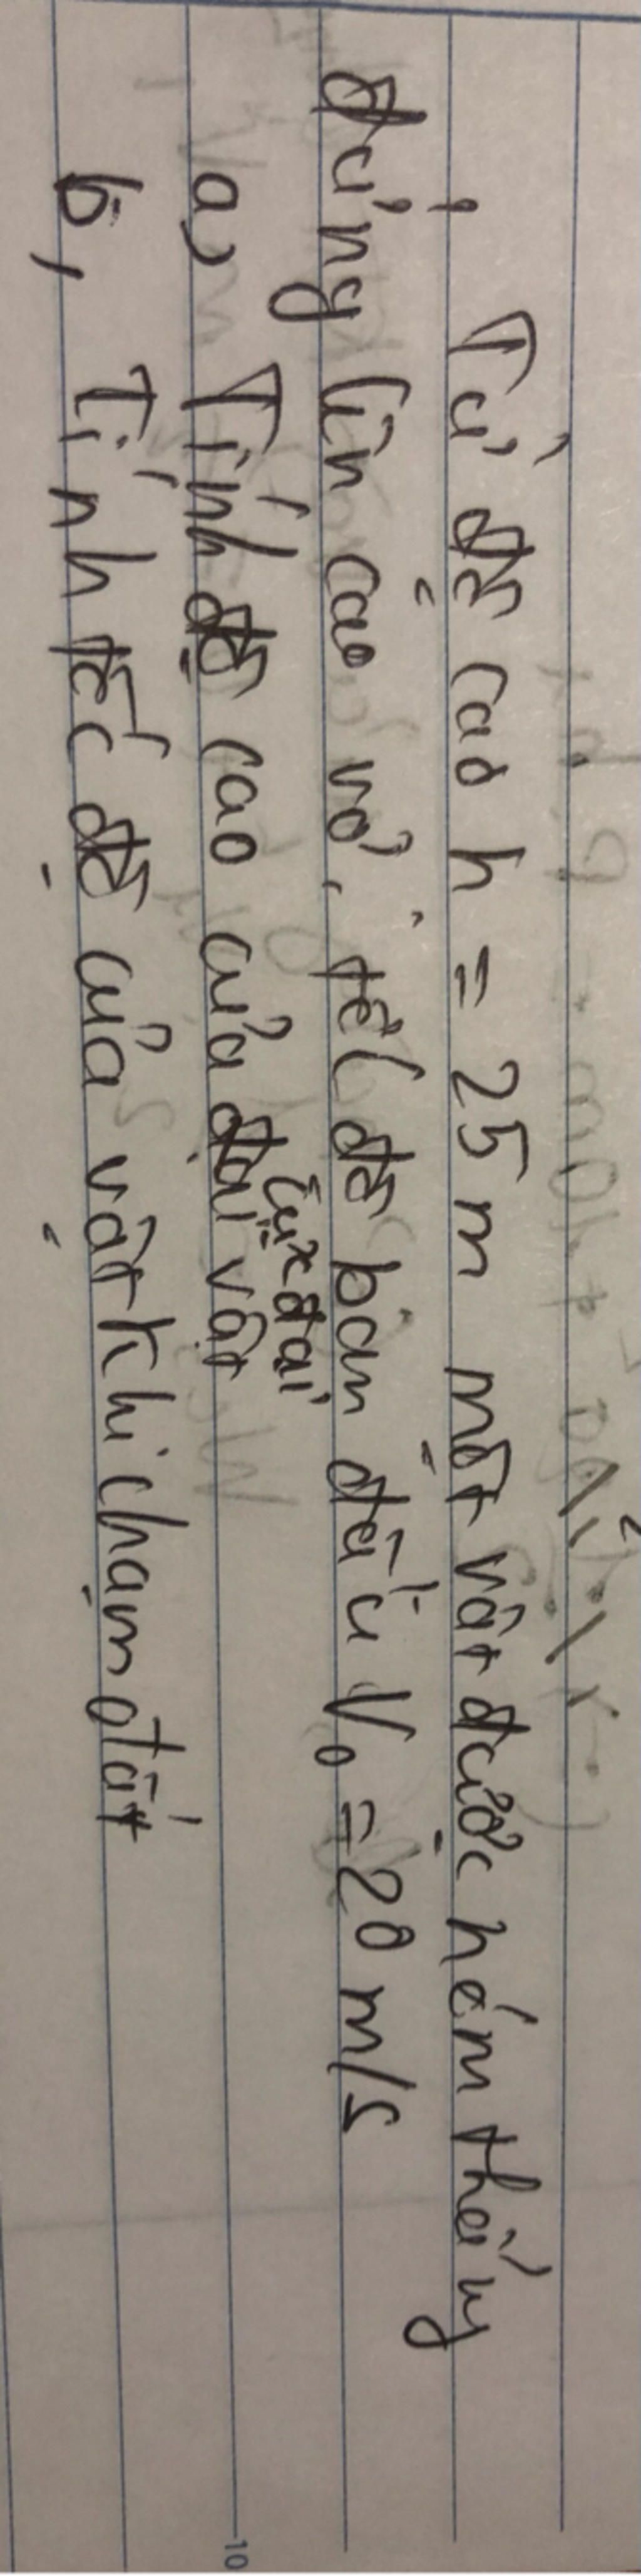 Từ độ cao h = 25 m một vật được ném thẳng
đứng lên cao với tốc độ ban đầu V₀ = 20 m/s
a, Tính độ cao cực đại của vật
b, Tính tốc độ của vật khi chạm đất
10